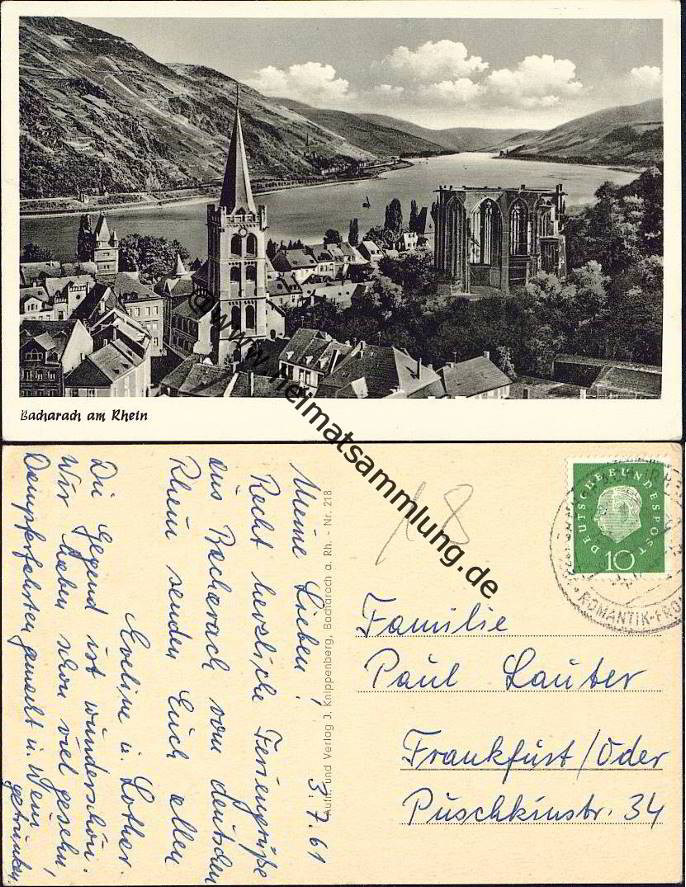 Bacharach am Rhein
© www.heimatsammlung.de
3.7.61
Meine Lieben!
Recht herzliche Feriengrüße
aus Bacharach vom deutschen
Rhein senden Euch allen
Evelin u. Lothar.
Die Gegend ist wunderschön.
Wir haben schon viel gesehn,
Dampferfahrten gemacht u. Wein
getrunken
Verlag J. Knippenberg, Bacharach a. Rh. - Nr. 218
18
DEUTSCHE BUNDESPOST
10
ROMANTIK-FRO
Familie
Paul Lauter
Frankfurt/Oder
Puschkinstr. 34